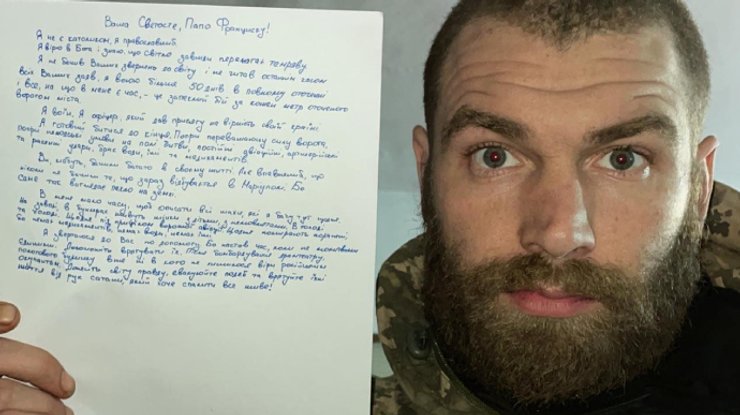 Ваша Святосте, Папо Франциску!
Я не є католиком, я православний.
Я вірю в Бога і знаю, що світло завжди перемагає темряву.
Я не бачив Ваших звернень до світу і не читав останнім часом
всіх Ваших заяв, я воюю більше 50 днів в повному оточенні
і все, на що в мене є час, - це запеклий бій за кожен метр оточеного
ворогом міста.
Я воїн. Я офіцер, який дав присягу на вірність своїй країні.
Я готовий битися до кінця. Попри переважаючу силу ворога,
попри нелюдські умови на полі битви, постійні авіаційні, артилерійські
та ракетні удари, брак води, їжі та медикаментів.
Ви, мабуть, бачили багато в своєму житті. Але впевнений, що
ніколи не бачили те, що зараз відбувається в Маріуполі. Бо
саме так виглядає пекло на землі.
В мене мало часу, щоб описати всі жахи, які я бачу тут щодня.
На заводі, в бункерах живуть жінки з дітьми, з немовлятами. В голоді
та холоді. Щодня під прицілом ворожої авіації. Щодня помирають поранені,
бо немає медикаментів, нема води, немає їжі.
Я звертаюся до Вас по допомогу. Бо настав час, коли не достатньо
молитися. Допоможіть врятувати їх. Після бомбардування драмтеатру,
пологового будинку вже ні в кого не лишилося віри російським
окупантам. Донесіть світу правду, евакуюйте людей та врятуйте їхні
життя від рук сатани, який хоче спалити все живе!